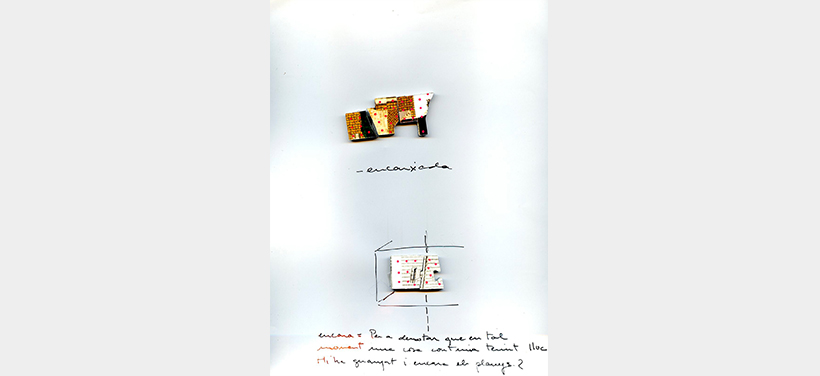 – encaixada
encara = Per a denotar que en tal
moment una cosa continua tenint lloc
M'ha guanyat i encara et planys?